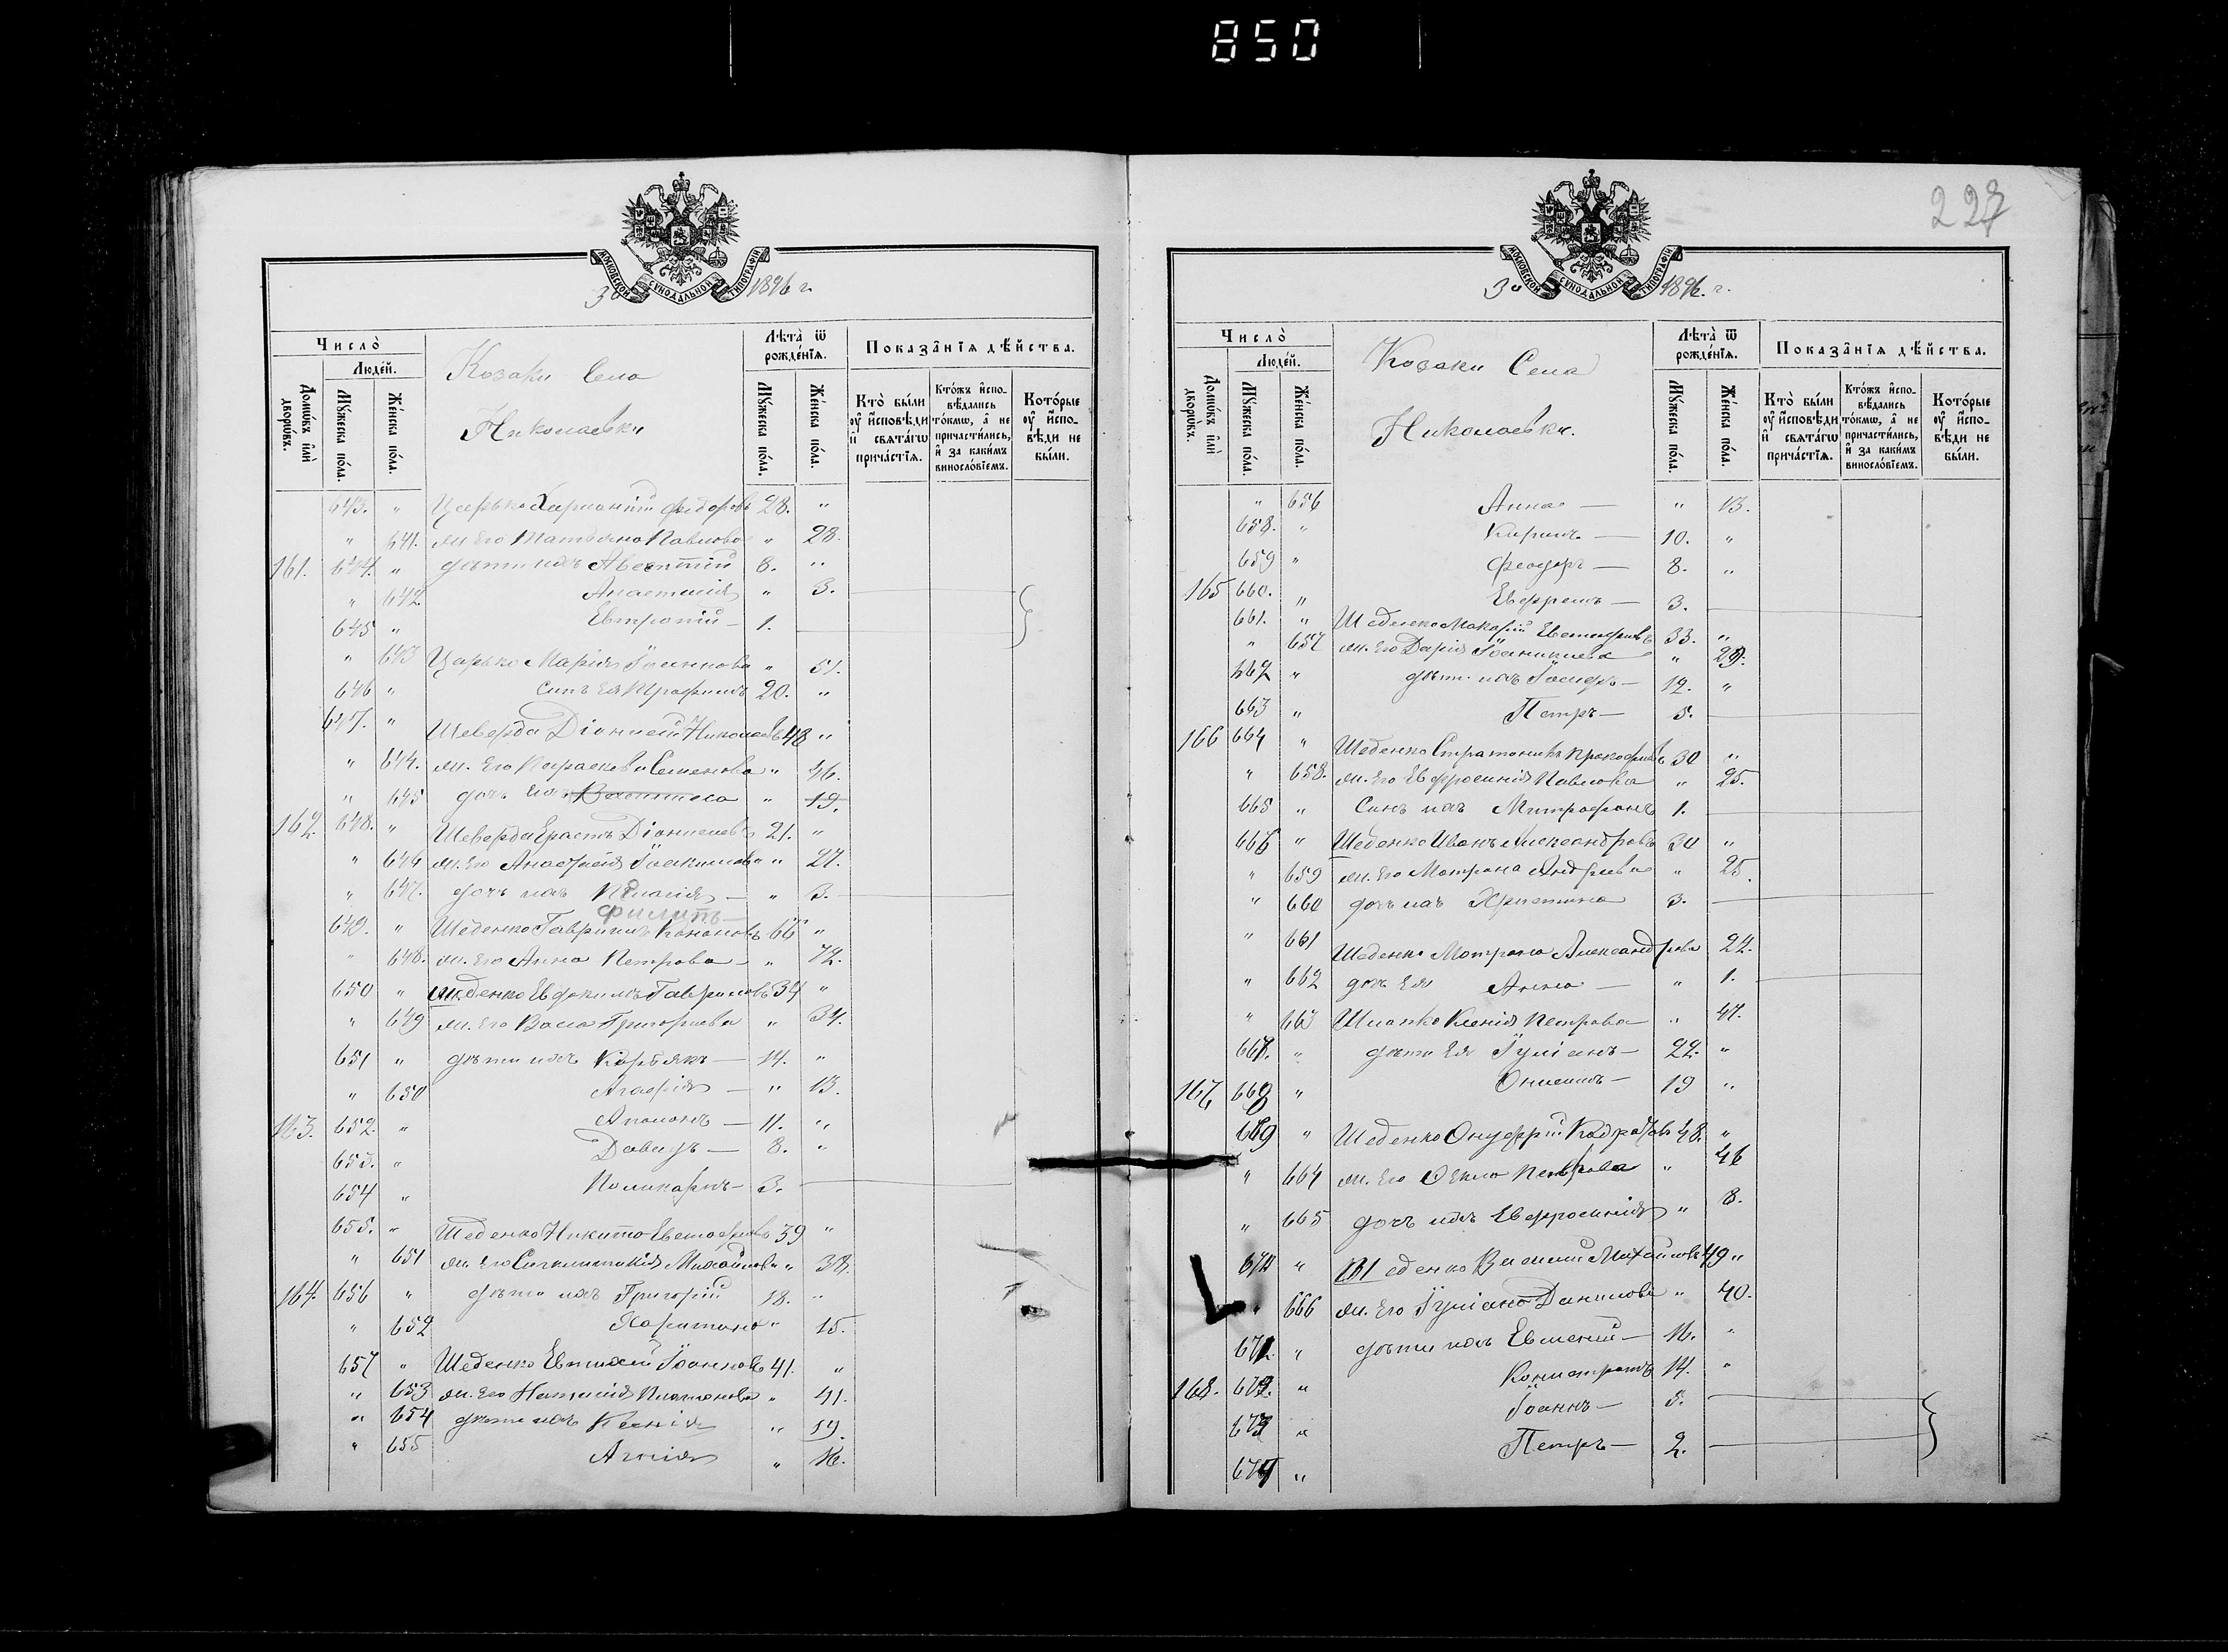 850
227
МОСКОВСКОЙ СѴНОДАЛЬНОЙ ТИПОГРАФІИ
За 1896 г.
Число̀
Людéй.
Домѡ́въ и҆лѝ дворѡ́въ.
Мꙋ́жеска по́ла.
Же́нска по́ла.
Козаки Села
Николаевки
Лѣта̀ ѿ рожде́нїѧ.
Мꙋ́жеска по́ла.
Же́нска по́ла.
Показа̑нїѧ дѣ́йства.
Кто̀ бы́ли ᲂу҆ и҆сповѣди и҆ свѧта́гѡ прича́стїѧ.
Кто́жъ и҆спо- вѣ́дались то́кмѡ, а҆ не причасти́лись, и҆ за каки́мъ винослóвїемъ.
Кото́рые ᲂу҆ и҆спо- вѣди не бы́ли.
643. " Царько Харлампій Федоровъ 28. "
" 641. ж. его Татьяна Павлова " 28.
161. 644. " дѣти ихъ Авксентій 8. "
" 642 Анастасія " 3.
645 " Евтропій 1.
" 643 Царько Марія Іоаннова " 51.
646 " сынъ ея Трофимъ 20. "
647. " Шеверда Діонисій Николаевъ 48 "
" 644. ж. его Параскева Семенова " 46.
" 645 дочь ихъ Васса " 19.
162. 648. " Шеверда Ерастъ Діонисіевъ 21. "
" 646 ж. его Анастасія Іоакимова " 27.
" 647. дочь ихъ Пелагія " 3.
Филипъ
649. " Шеденко Гавриилъ Кононовъ 66 "
" 648. ж. его Анна Петрова " 72.
650 " Шеденко Евдокимъ Гавриловъ 34 "
" 649 ж. его Васса Григориева " 34.
651 " дѣти ихъ Карпъ 14. "
" 650 Агафія " 13.
163. 652. " 11. "
653. " Давидъ 8. "
654 " Поликарпъ 3.
655. " Шеденко Никита Евстафіевъ 39 "
" 651 ж. его Синклитикія Михайлова " 38.
164. 656 " дѣти ихъ Григорій 18. "
" 652 Харитина " 15.
657 " Шеденко Евтихій Іоанновъ 41. "
" 653 ж. его Наталія Платонова " 41.
" 654 дѣти ихъ Ксенія " 19.
" 655 Агнія " 16.
За 1896. г.
Число̀
Людéй.
Домѡ́въ и҆лѝ дворѡ́въ.
Мꙋ́жеска по́ла.
Же́нска по́ла.
Козаки Села
Николаевки.
Лѣта̀ ѿ рожде́нїѧ.
Мꙋ́жеска по́ла.
Же́нска по́ла.
Показа̑нїѧ дѣ́йства.
Кто̀ бы́ли ᲂу҆ и҆сповѣди и҆ свѧта́гѡ прича́стїѧ.
Кто́жъ и҆спо- вѣ́дались то́кмѡ, а҆ не причасти́лись, и҆ за каки́мъ винослóвїемъ.
Кото́рые ᲂу҆ и҆спо- вѣди не бы́ли.
" 656 Анна " 13.
658. " Кириллъ 10. "
659 " Феодоръ 8. "
165 660. " Евфремъ 3.
661. " Шеденко Макарій Евстафіевъ 33. "
" 657 ж. его Дарія Іоанникиева " 29.
662 " дѣти ихъ Іосифъ 12. "
663 " Петръ 5.
166 664 " Шеденко Стратоникъ Прокофіевъ 30 "
" 658. ж. его Евфросинія Павлова " 25.
665 " Сынъ ихъ Митрофанъ 1.
666 " Шеденко Иванъ Александровъ 30 "
" 659 ж. его Мотрона Андріева " 25.
" 660 дочь ихъ Христина 3.
" 661 Шеденко Мотрона Александрова 22.
" 662 дочь ея Анна " 1.
" 663 Шиянко Ксенія Петрова " 47.
667. " дѣти ея Іуліанъ 22. "
167 668 " Онисимъ 19 "
669 " Шеденко Онуфрій Кодратовъ 48. "
" 664 ж. его Ѳекла Петрова " 46
" 665 дочь ихъ Евфросинія " 8.
670 " Шеденко Василій Михайловъ 49 "
" 666 ж. его Іуліана Данилова " 40.
671 " дѣти ихъ Евменій 16. "
168. 672. " Кондратъ 14. "
673 " Іоаннъ 5.
674 " Петръ 2.